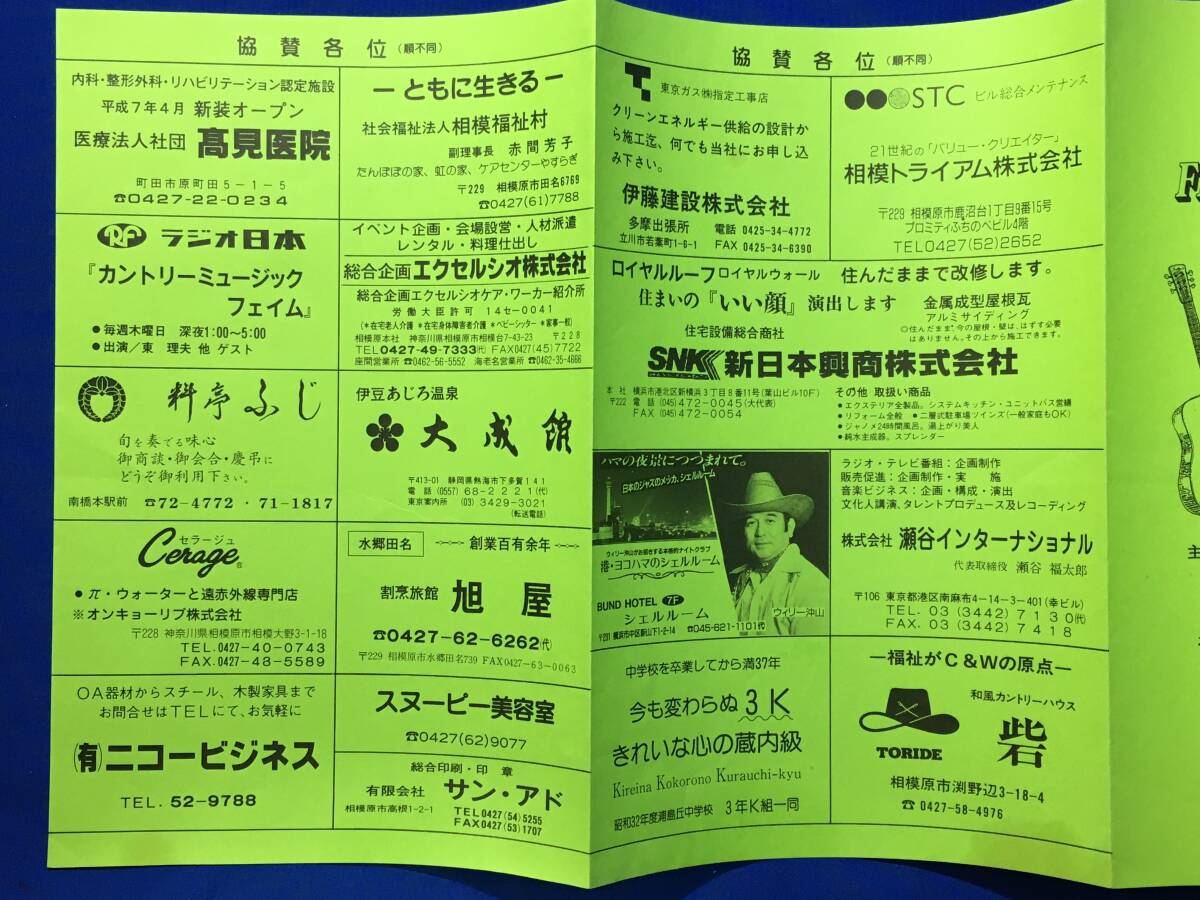 協賛各位(順不同)
内科・整形外科・リハビリテーション認定施設
平成7年4月 新装オープン
医療法人社団 髙見医院
町田市原町田5-1-5
☎0427-22-0234
RF ラジオ日本
『カントリーミュージック
フェイム』
●毎週木曜日 深夜1:00~5:00
●出演/東 理夫 他 ゲスト
料亭ふじ
旬を奏でる味心
御商談・御会合・慶弔に
どうぞ御利用下さい。
南橋本駅前 ☎72-4772・71-1817
セラージュ
Cerage®
●π・ウォーターと遠赤外線専門店
※オンキョーリブ株式会社
〒228 神奈川県相模原市相模大野3-1-18
TEL.0427-40-0743
FAX.0427-48-5589
OA器材からスチール、木製家具まで
お問合せはTELにて、お気軽に
(有)ニコービジネス
TEL. 52-9788
ーともに生きるー
社会福祉法人 相模福祉村
副理事長 赤間芳子
たんぽぽの家、虹の家、ケアセンターやすらぎ
〒229 相模原市田名6769
☎0427(61)7788
イベント企画・会場設営・人材派遣
レンタル・料理仕出し
総合企画 エクセルシオ株式会社
総合企画エクセルシオケア・ワーカー紹介所
労働大臣許可 14セー0041
(*在宅老人介護 *在宅身体障害者介護 *ベビーシッター *家事一般)
相模原本社 神奈川県相模原市相模台7-43-23 〒228
TEL0427-49-7333(代) FAX0427(45)7722
座間営業所 ☎0462-56-5552 海老名営業所 ☎0462-35-4666
伊豆あじろ温泉
大成館
〒413-01 静岡県熱海市下多賀141
電話(0557)68-2221(代)
東京案内所 (03)3429-3021
(転送電話)
水郷田名 創業百有余年
割烹旅館 旭屋
☎0427-62-6262(代)
〒229 相模原市水郷田名739 FAX0427-63-0063
スヌーピー美容室
☎0427(62)9077
総合印刷・印章
有限会社 サン・アド
相模原市高根1-2-1
TEL0427(54)5255
FAX0427(53)1707
協賛各位(順不同)
東京ガス㈱指定工事店
クリーンエネルギー供給の設計か
ら施工迄、何でも当社にお申し込
み下さい。
伊藤建設株式会社
多摩出張所 電話 0425-34-4772
立川市若葉町1-6-1 FAX 0425-34-6390
STC ビル総合メンテナンス
21世紀の「バリュー・クリエイター」
相模トライアム株式会社
〒229 相模原市鹿沼台1丁目9番15号
プロミティふちのべビル4階
TEL0427(52)2652
ロイヤルルーフ ロイヤルウォール 住んだままで改修します。
住まいの『いい顔』演出します
金属成型屋根瓦
アルミサイディング
◎住んだまま、今の屋根・壁は、はずす必要
はありません。その上から施工できます。
住宅設備総合商社
SNK 新日本興商株式会社
本社 横浜市港北区新横浜3丁目8番11号(葉山ビル10F)
〒222 電話 (045)472-0045(大代表)
FAX (045)472-0054
その他 取扱い商品
●エクステリア全製品。システムキッチン・ユニットバス営繕
●リフォーム全般 ●二層式駐車場ツインズ(一般家庭もOK)
●ジャノメ24時間風呂。湯上がり美人
●純水主成器。スプレンダー
ハマの夜景につつまれて。
日本のジャズのメッカ、シェルルーム
ウィリー沖山がお招きする本格的ナイトクラブ
港・ヨコハマのシェルルーム
BUND HOTEL 7F
シェルルーム
〒231 横浜市中区新山下1-2-14 ☎045-621-1101代
ウィリー沖山
ラジオ・テレビ番組:企画制作
販売促進:企画制作・実施
音楽ビジネス:企画・構成・演出
文化人講演、タレントプロデュース及レコーディング
株式会社 瀬谷インターナショナル
代表取締役 瀬谷 福太郎
〒106 東京都港区南麻布4-14-3-401(幸ビル)
TEL. 03(3442)7130(代)
FAX. 03(3442)7418
中学校を卒業してから満37年
今も変わらぬ3K
きれいな心の蔵内級
Kireina Kokorono Kurauchi-kyu
昭和32年度浦島丘中学校 3年K組一同
ー福祉がC&Wの原点ー
TORIDE
和風カントリーハウス
砦
相模原市渕野辺3-18-4
☎0427-58-4976
主